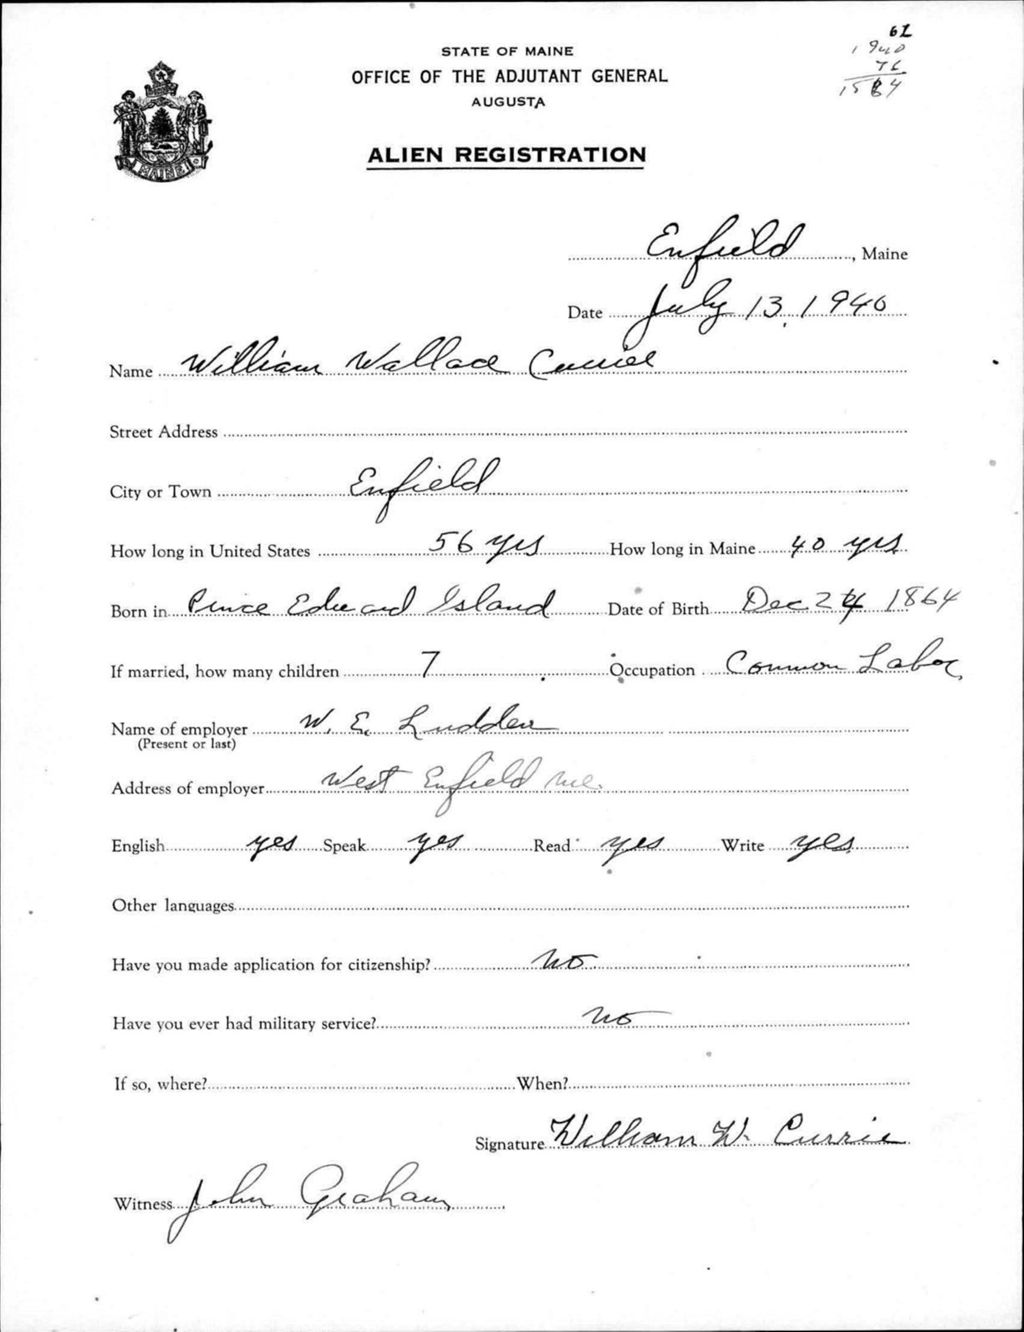 62
1940
76
1864
STATE OF MAINE
OFFICE OF THE ADJUTANT GENERAL
AUGUSTA
ALIEN REGISTRATION
MAINE
Enfield, Maine
Date July 13, 1940
Name William Wallace Currie
Street Address
City or Town Enfield
How long in United States 56 yrs How long in Maine 40 yrs
Born in Prince Edward Island Date of Birth Dec 24 1864
If married, how many children 7 Occupation Common Labor
Name of employer W. E. Ludden
(Present or last)
Address of employer West Enfield Me.
English yes Speak yes Read yes Write yes
Other languages
Have you made application for citizenship? no
Have you ever had military service? no
If so, where? When?
Signature William W. Currie
Witness John Graham